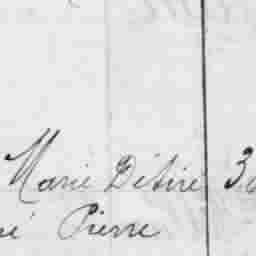 Marie Désiré 3
Pierre